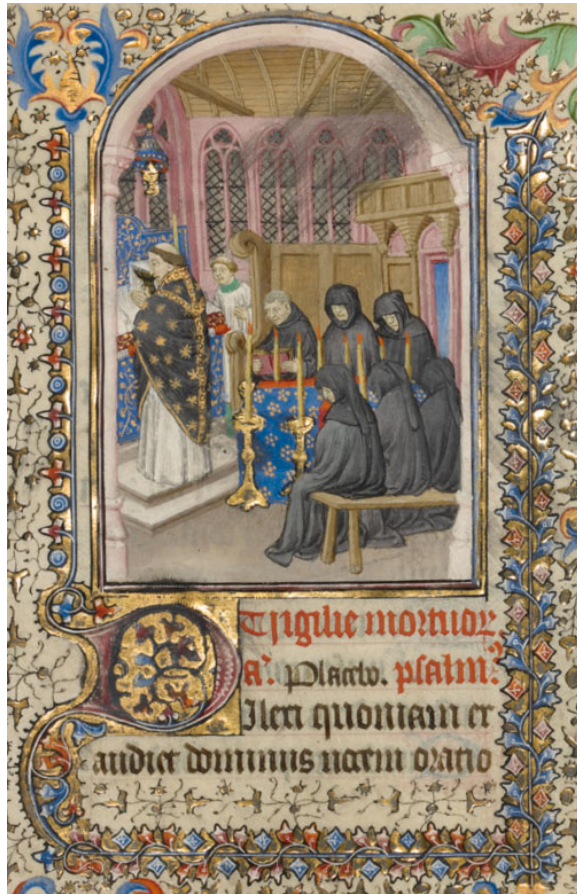 Vigilie mortuoꝝ
a. Placebo. psalmꝰ
DIlexi quoniam ex
audiet dominus uocem oratio